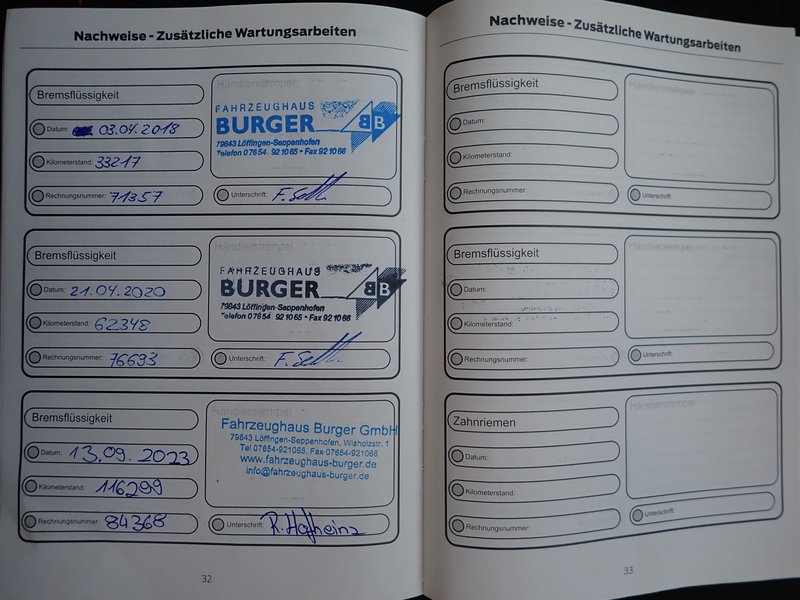 Nachweise - Zusätzliche Wartungsarbeiten
Bremsflüssigkeit
Händlerstempel
FAHRZEUGHAUS
BURGER
BB
79843 Löffingen-Seppenhofen
Telefon 07654 - 921065 - Fax 921066
Datum: 03.04.2018
Kilometerstand: 33217
Rechnungsnummer: 71357
Unterschrift:
Bremsflüssigkeit
Händlerstempel
FAHRZEUGHAUS
BURGER
BB
79843 Löffingen-Seppenhofen
Telefon 07654 921065 - Fax 921066
Datum: 21.04.2020
Kilometerstand: 62348
Rechnungsnummer: 76693
Unterschrift:
Bremsflüssigkeit
Händlerstempel
Fahrzeughaus Burger GmbH
79843 Löffingen-Seppenhofen, Wisholzstr. 1
Tel 07654-921065, Fax 07654-921066
www.fahrzeughaus-burger.de
info@fahrzeughaus-burger.de
Datum: 13.09.2023
Kilometerstand: 116299
Rechnungsnummer: 84368
Unterschrift: R. Hofheinz
32
Nachweise - Zusätzliche Wartungsarbeiten
Bremsflüssigkeit
Händlerstempel
Datum:
Kilometerstand:
Rechnungsnummer:
Unterschrift:
Bremsflüssigkeit
Händlerstempel
Datum:
Kilometerstand:
Rechnungsnummer:
Unterschrift:
Zahnriemen
Händlerstempel
Datum:
Kilometerstand:
Rechnungsnummer:
Unterschrift:
33